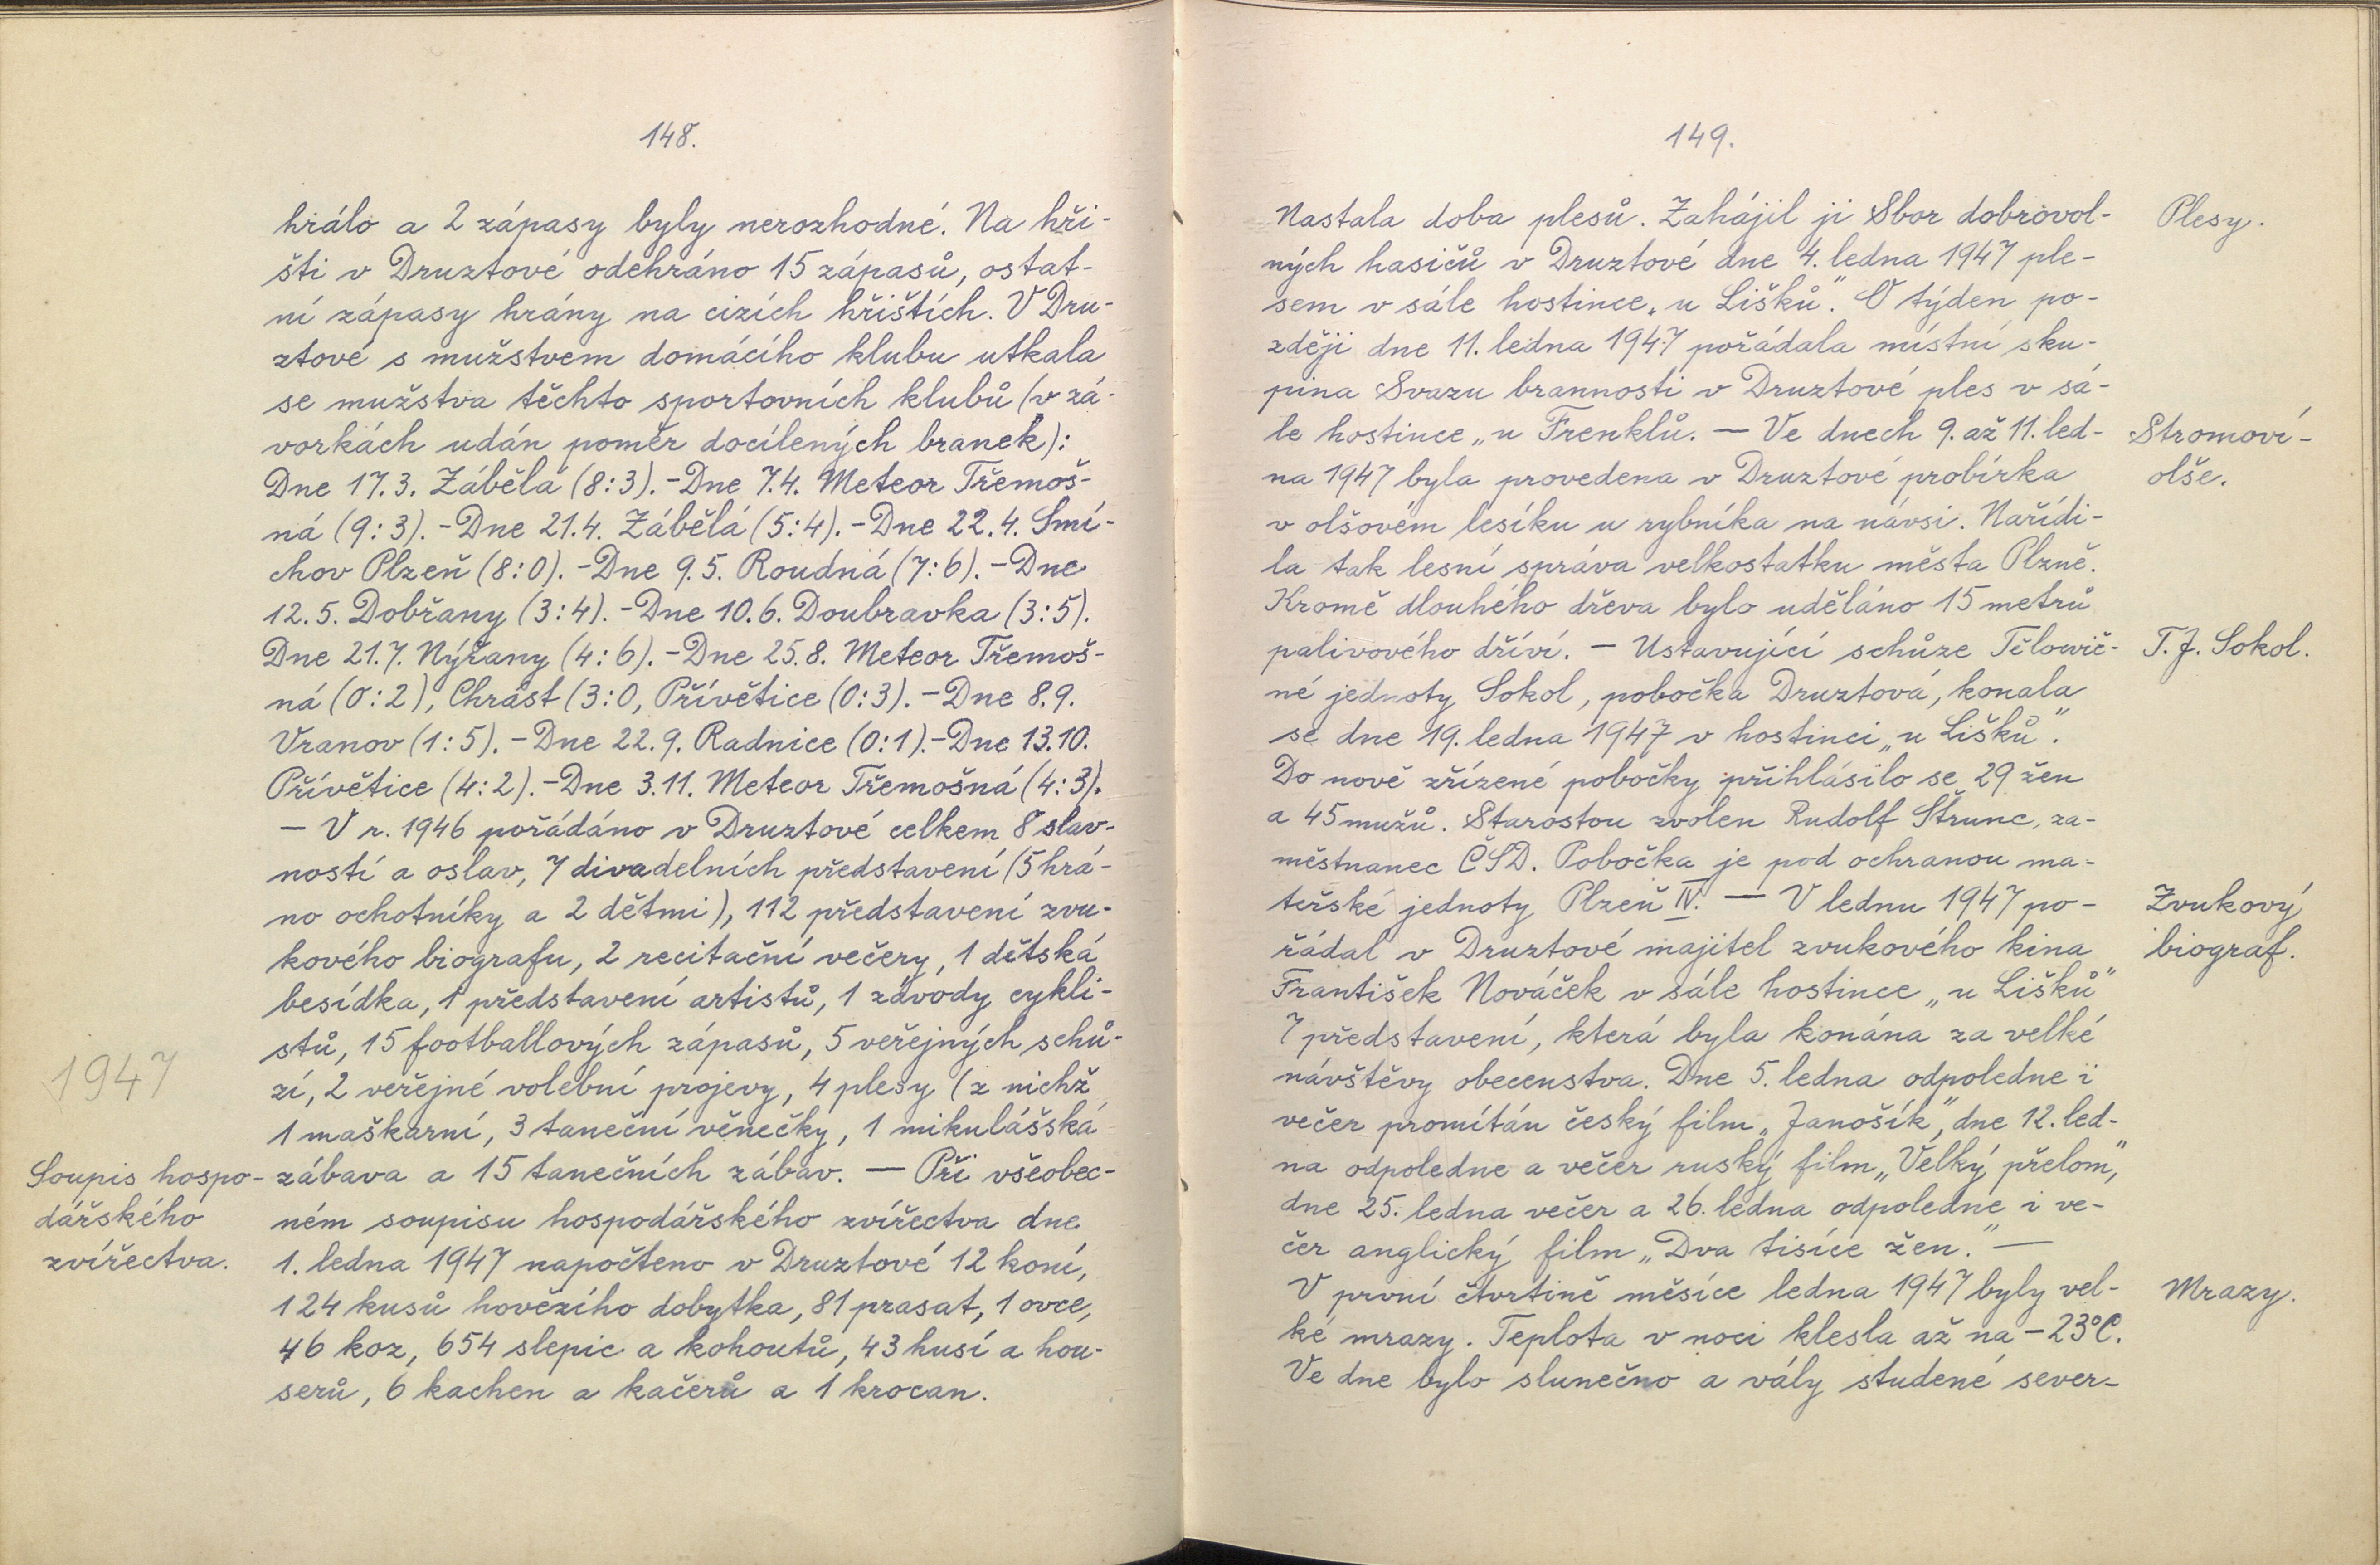 148.
hrálo a 2 zápasy byly nerozhodné. Na hři-
šti v Druztové odehráno 15 zápasů, ostat-
ní zápasy hrány na cizích hřištích. V Dru-
ztové s mužstvem domácího klubu utkala
se mužstva těchto sportovních klubů (v zá-
vorkách udán poměr docílených branek):
Dne 17.3. Zábělá (8:3). - Dne 7.4. Meteor Třemoš-
ná (9:3). - Dne 21.4. Zábělá (5:4). - Dne 22.4. Smí-
chov Plzeň (8:0). - Dne 9.5. Roudná (7:6). - Dne
12.5. Dobřany (3:4). - Dne 10.6. Doubravka (3:5).
Dne 21.7. Nýřany (4:6). - Dne 25.8. Meteor Třemoš-
ná (0:2), Chrást (3:0, Přívětice (0:3). - Dne 8.9.
Vranov (1:5). - Dne 22.9. Radnice (0:1). - Dne 13.10.
Přívětice (4:2). - Dne 3.11. Meteor Třemošná (4:3).
— V r. 1946 pořádáno v Druztové celkem 8 slav-
ností a oslav, 7 divadelních představení (5 hrá-
no ochotníky a 2 dětmi), 112 představení zvu-
kového biografu, 2 recitační večery, 1 dětská
besídka, 1 představení artistů, 1 závody cykli-
stů, 15 footballových zápasů, 5 veřejných schů-
1947
zí, 2 veřejné volební projevy, 4 plesy (z nichž
1 maškarní, 3 taneční věnečky, 1 mikulášská
Soupis hospo-
dářského
zvířectva.
zábava a 15 tanečních zábav. — Při všeobec-
ném soupisu hospodářského zvířectva dne
1. ledna 1947 napočteno v Druztové 12 koní,
124 kusů hovězího dobytka, 81 prasat, 1 ovce,
46 koz, 654 slepic a kohoutů, 43 husí a hou-
serů, 6 kachen a kačerů a 1 krocan.
149.
Nastala doba plesů. Zahájil ji Sbor dobrovol-
Plesy.
ných hasičů v Druztové dne 4. ledna 1947 ple-
sem v sále hostince „u Lišků". O týden po-
zději dne 11. ledna 1947 pořádala místní sku-
pina Svazu brannosti v Druztové ples v sá-
le hostince „u Frenklů. — Ve dnech 9. až 11. led-
Stromoví-
olše.
na 1947 byla provedena v Druztové probírka
v olšovém lesíku u rybníka na návsi. Nařídi-
la tak lesní správa velkostatku města Plzně.
Kromě dlouhého dřeva bylo uděláno 15 metrů
palivového dříví. — Ustavující schůze Tělocvič-
T. J. Sokol.
né jednoty Sokol, pobočka Druztová, konala
se dne 19. ledna 1947 v hostinci „u Lišků".
Do nově zřízené pobočky přihlásilo se 29 žen
a 45 mužů. Starostou zvolen Rudolf Štrunc, za-
městnanec ČSD. Pobočka je pod ochranou ma-
teřské jednoty Plzeň IV. — V lednu 1947 po-
Zvukový
biograf.
řádal v Druztové majitel zvukového kina
František Nováček v sále hostince „u Lišků"
7 představení, která byla konána za velké
návštěvy obecenstva. Dne 5. ledna odpoledne i
večer promítán český film „Janošík", dne 12. led-
na odpoledne a večer ruský film „Velký přelom",
dne 25. ledna večer a 26. ledna odpoledne i ve-
čer anglický film „Dva tisíce žen." —
V první čtvrtině měsíce ledna 1947 byly vel-
Mrazy.
ké mrazy. Teplota v noci klesla až na -23°C.
Ve dne bylo slunečno a vály studené sever-